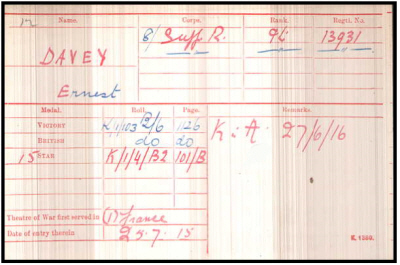 Name. Corps. Rank. Regtl. No.
8/ Suff. R. Pte 13931
DAVEY
Ernest
Medal. Roll. Page. Remarks.
VICTORY 2/6 1126
BRITISH do do
15 STAR K/1/4/B2 101/B
K: A: 27/6/16
Theatre of War first served in (1) France
Date of entry therein 25.7.15
K. 1380.